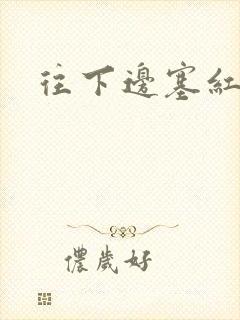 往下邊塞紅
儂歲好